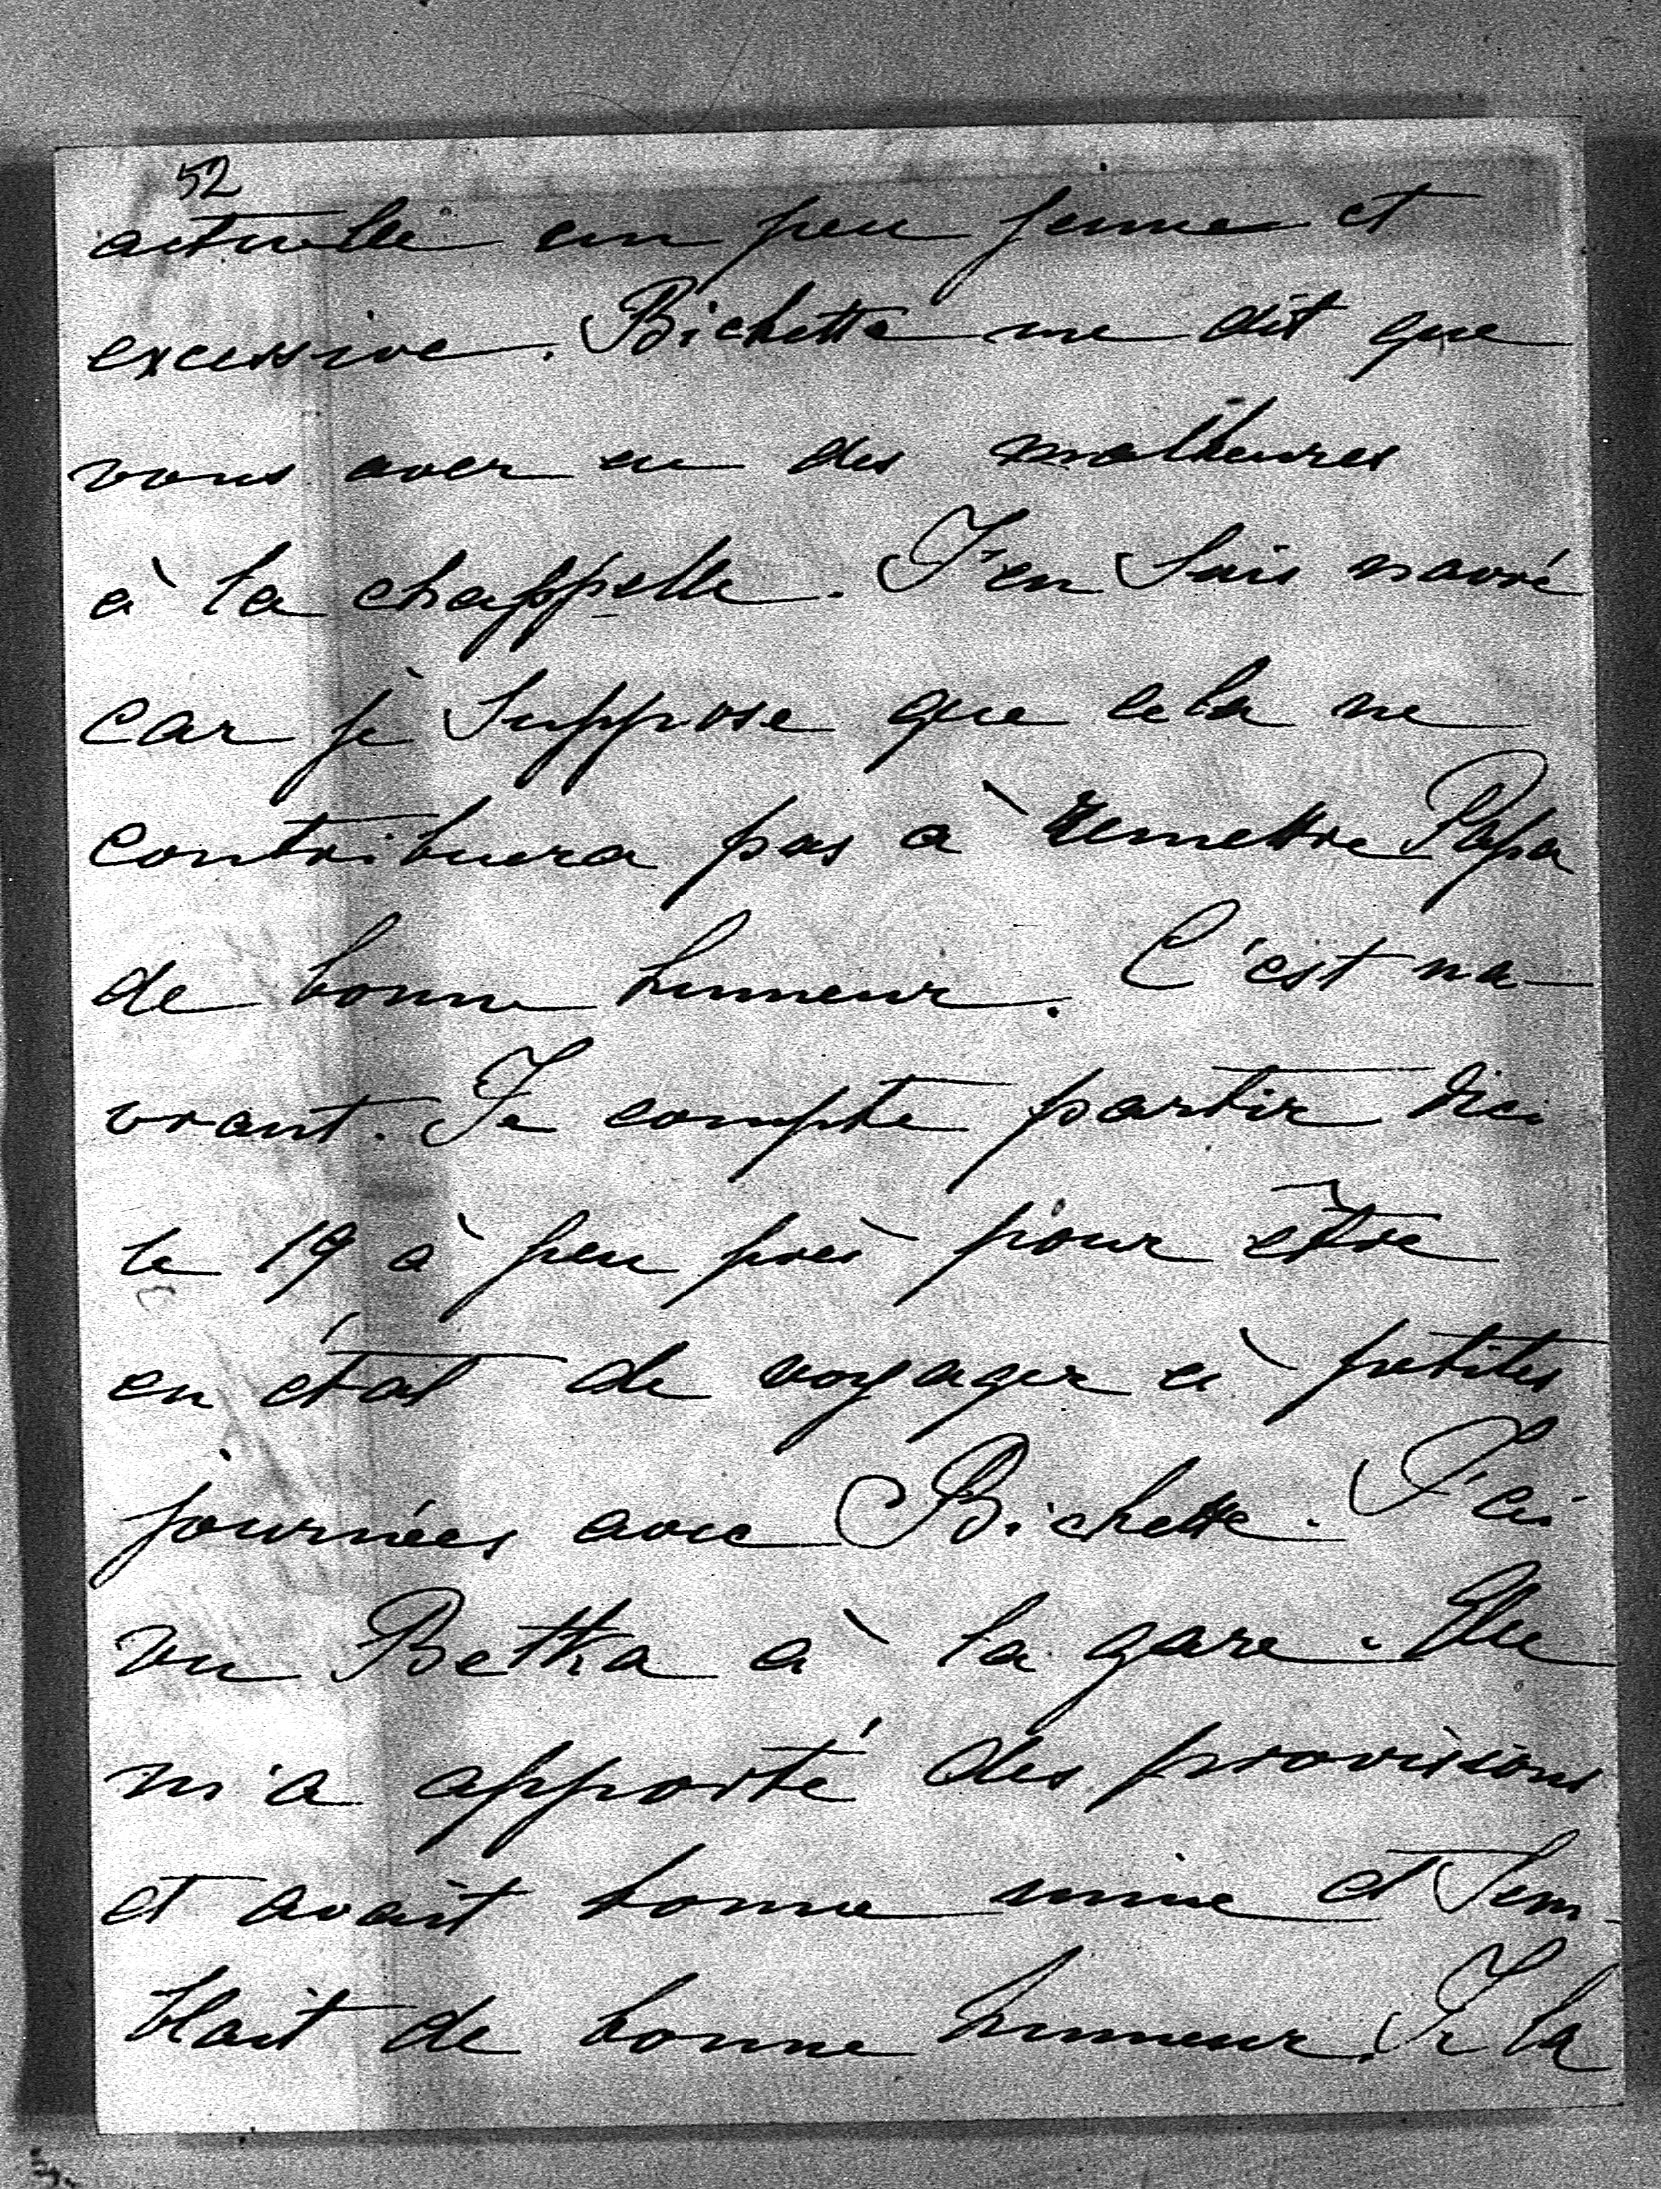 52
actuelle un peu jeune et
excessive. Bichette me dit que
vous avez eu des malheures
à la chappelle. J'en suis navré
car je suppose que cela ne
contribuera pas à remettre Papa
de bonne humeur. C'est na-
vrant. Je compte partir d'ici
le 19 à peu près pour être
en état de voyager à petites
journées avec Bichette. J'ai
vu Betka à la gare. Elle
m'a apporté des provisions
et avait bonne mine et sem-
blait de bonne humeur. Je la